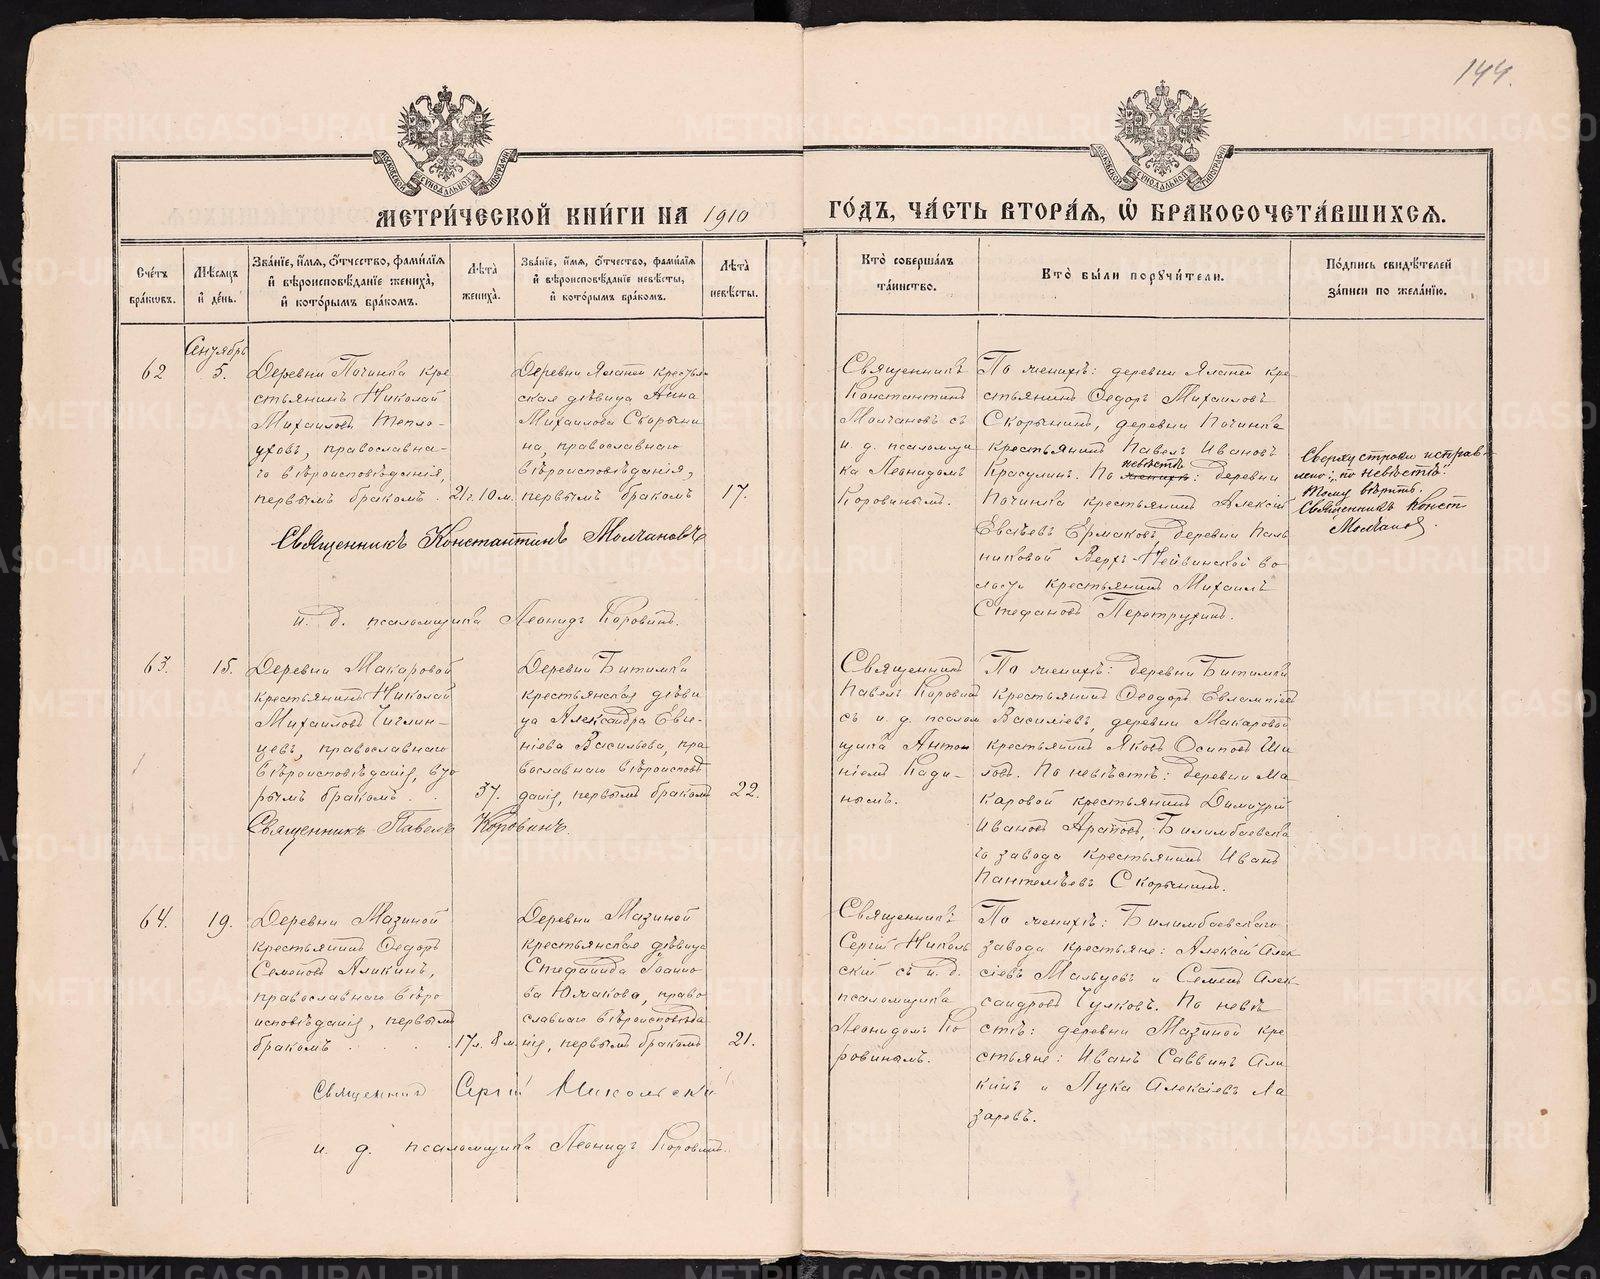 144.
МЕТРИ́ЧЕСКОЙ КНИ́ГИ НА 1910
ГО́ДЪ, ЧА́СТЬ ВТОРА́Я, Ѽ БРАКОСОЧЕТА́ВШИХСЯ.
Сче́тъ бра́ковъ.
Мѣ́сяцъ и҆ де́нь.
Зва́нїе, и҆́мя, ѻ҆́тчество, фами́лїя
и҆ вѣроисповѣ́данїе жениха̀,
и҆ кото́рымъ бра́комъ.
Лѣ́та жениха̀.
Зва́нїе, и҆́мя, ѻ҆́тчество, фами́лїя
и҆ вѣроисповѣ́данїе невѣ́сты,
и҆ кото́рымъ бра́комъ.
Лѣ́та невѣ́сты.
Кто̀ соверша́лъ та́инство.
Кто̀ бы́ли порꙋчи́тели.
По́дпись свидѣ́телей за́писи по жела́нїю.
62
Сентябрь
5.
Деревни Починка кре
стьянинъ Николай
Михаиловъ Тепло-
уховъ, православна-
го вѣроисповѣданія,
первымъ бракомъ.
21 г. 10 м.
Деревни Яланей крестьян
ская дѣвица Анна
Михаилова Скорыни
на, православнаго
вѣроисповѣданія,
первымъ бракомъ
17.
Священникъ
Константинъ
Молчановъ съ
и. д. псаломщи
ка Леонидомъ
Коровинымъ.
По женихѣ: деревни Яланей кре
стьянинъ Ѳедоръ Михаиловъ
Скорынинъ, деревни Починка
крестьянинъ Павелъ Ивановъ
невѣстѣ
Красулинъ. По женихѣ: деревни
Починка крестьянинъ Алексѣй
Евсѣевъ Ермаковъ, деревни Паль
никовой Верхъ-Нейвинской во
лости крестьянинъ Михаилъ
Стефановъ Перетрухинъ.
Сверху строки исправ
лено: „по невѣстѣ".
Тому вѣрить.
Священникъ Конст.
Молчановъ.
Священникъ Константинъ Молчановъ
и. д. псаломщика Леонидъ Коровинъ.
63.
15.
Деревни Макаровой
крестьянинъ Николай
Михаиловъ Чиглин-
цевъ, православнаго
вѣроисповѣданія, вто
рымъ бракомъ . .
37.
Деревни Битимки
крестьянская дѣви
ца Александра Евге-
ніева Васильева, пра
вославнаго вѣроисповѣ
данія, первымъ бракомъ
22.
Священникъ
Павелъ Коровинъ
съ и. д. псалом
щика Антон
ніемъ Кади-
нымъ.
По женихѣ: деревни Битимки
крестьянинъ Ѳеодоръ Евлампіевъ
Василіевъ, деревни Макаровой
крестьянинъ Яковъ Осиповъ Ши
ловъ. По невѣстѣ: деревни Ма
каровой крестьянинъ Димитрій
Ивановъ Араповъ, Билимбаевска
го завода крестьянинъ Иванъ
Пантелѣевъ Скорынинъ.
Священникъ Павелъ Коровинъ.
64.
19.
Деревни Мазиной
крестьянинъ Ѳедоръ
Семеновъ Аликинъ,
православнаго вѣро
исповѣданія, первымъ
бракомъ . . . .
17 л. 8 м.
Деревни Мазиной
крестьянская дѣвица
Стефанида Іоанно
ва Южакова, право
славнаго вѣроисповѣда
нія, первымъ бракомъ
21.
Священникъ
Сергій Николь
скій съ и. д.
псаломщика
Леонидомъ Ко
ровинымъ.
По женихѣ: Билимбаевскаго
завода крестьяне: Алексѣй Алек
сіевъ Мальцевъ и Семенъ Алек
сандровъ Чулковъ. По невѣ
стѣ: деревни Мазиной кре
стьяне: Иванъ Саввинъ Али
кинъ и Лука Алексіевъ Ла
заревъ.
Священникъ Сергій Никольскій
и. д. псаломщика Леонидъ Коровинъ.